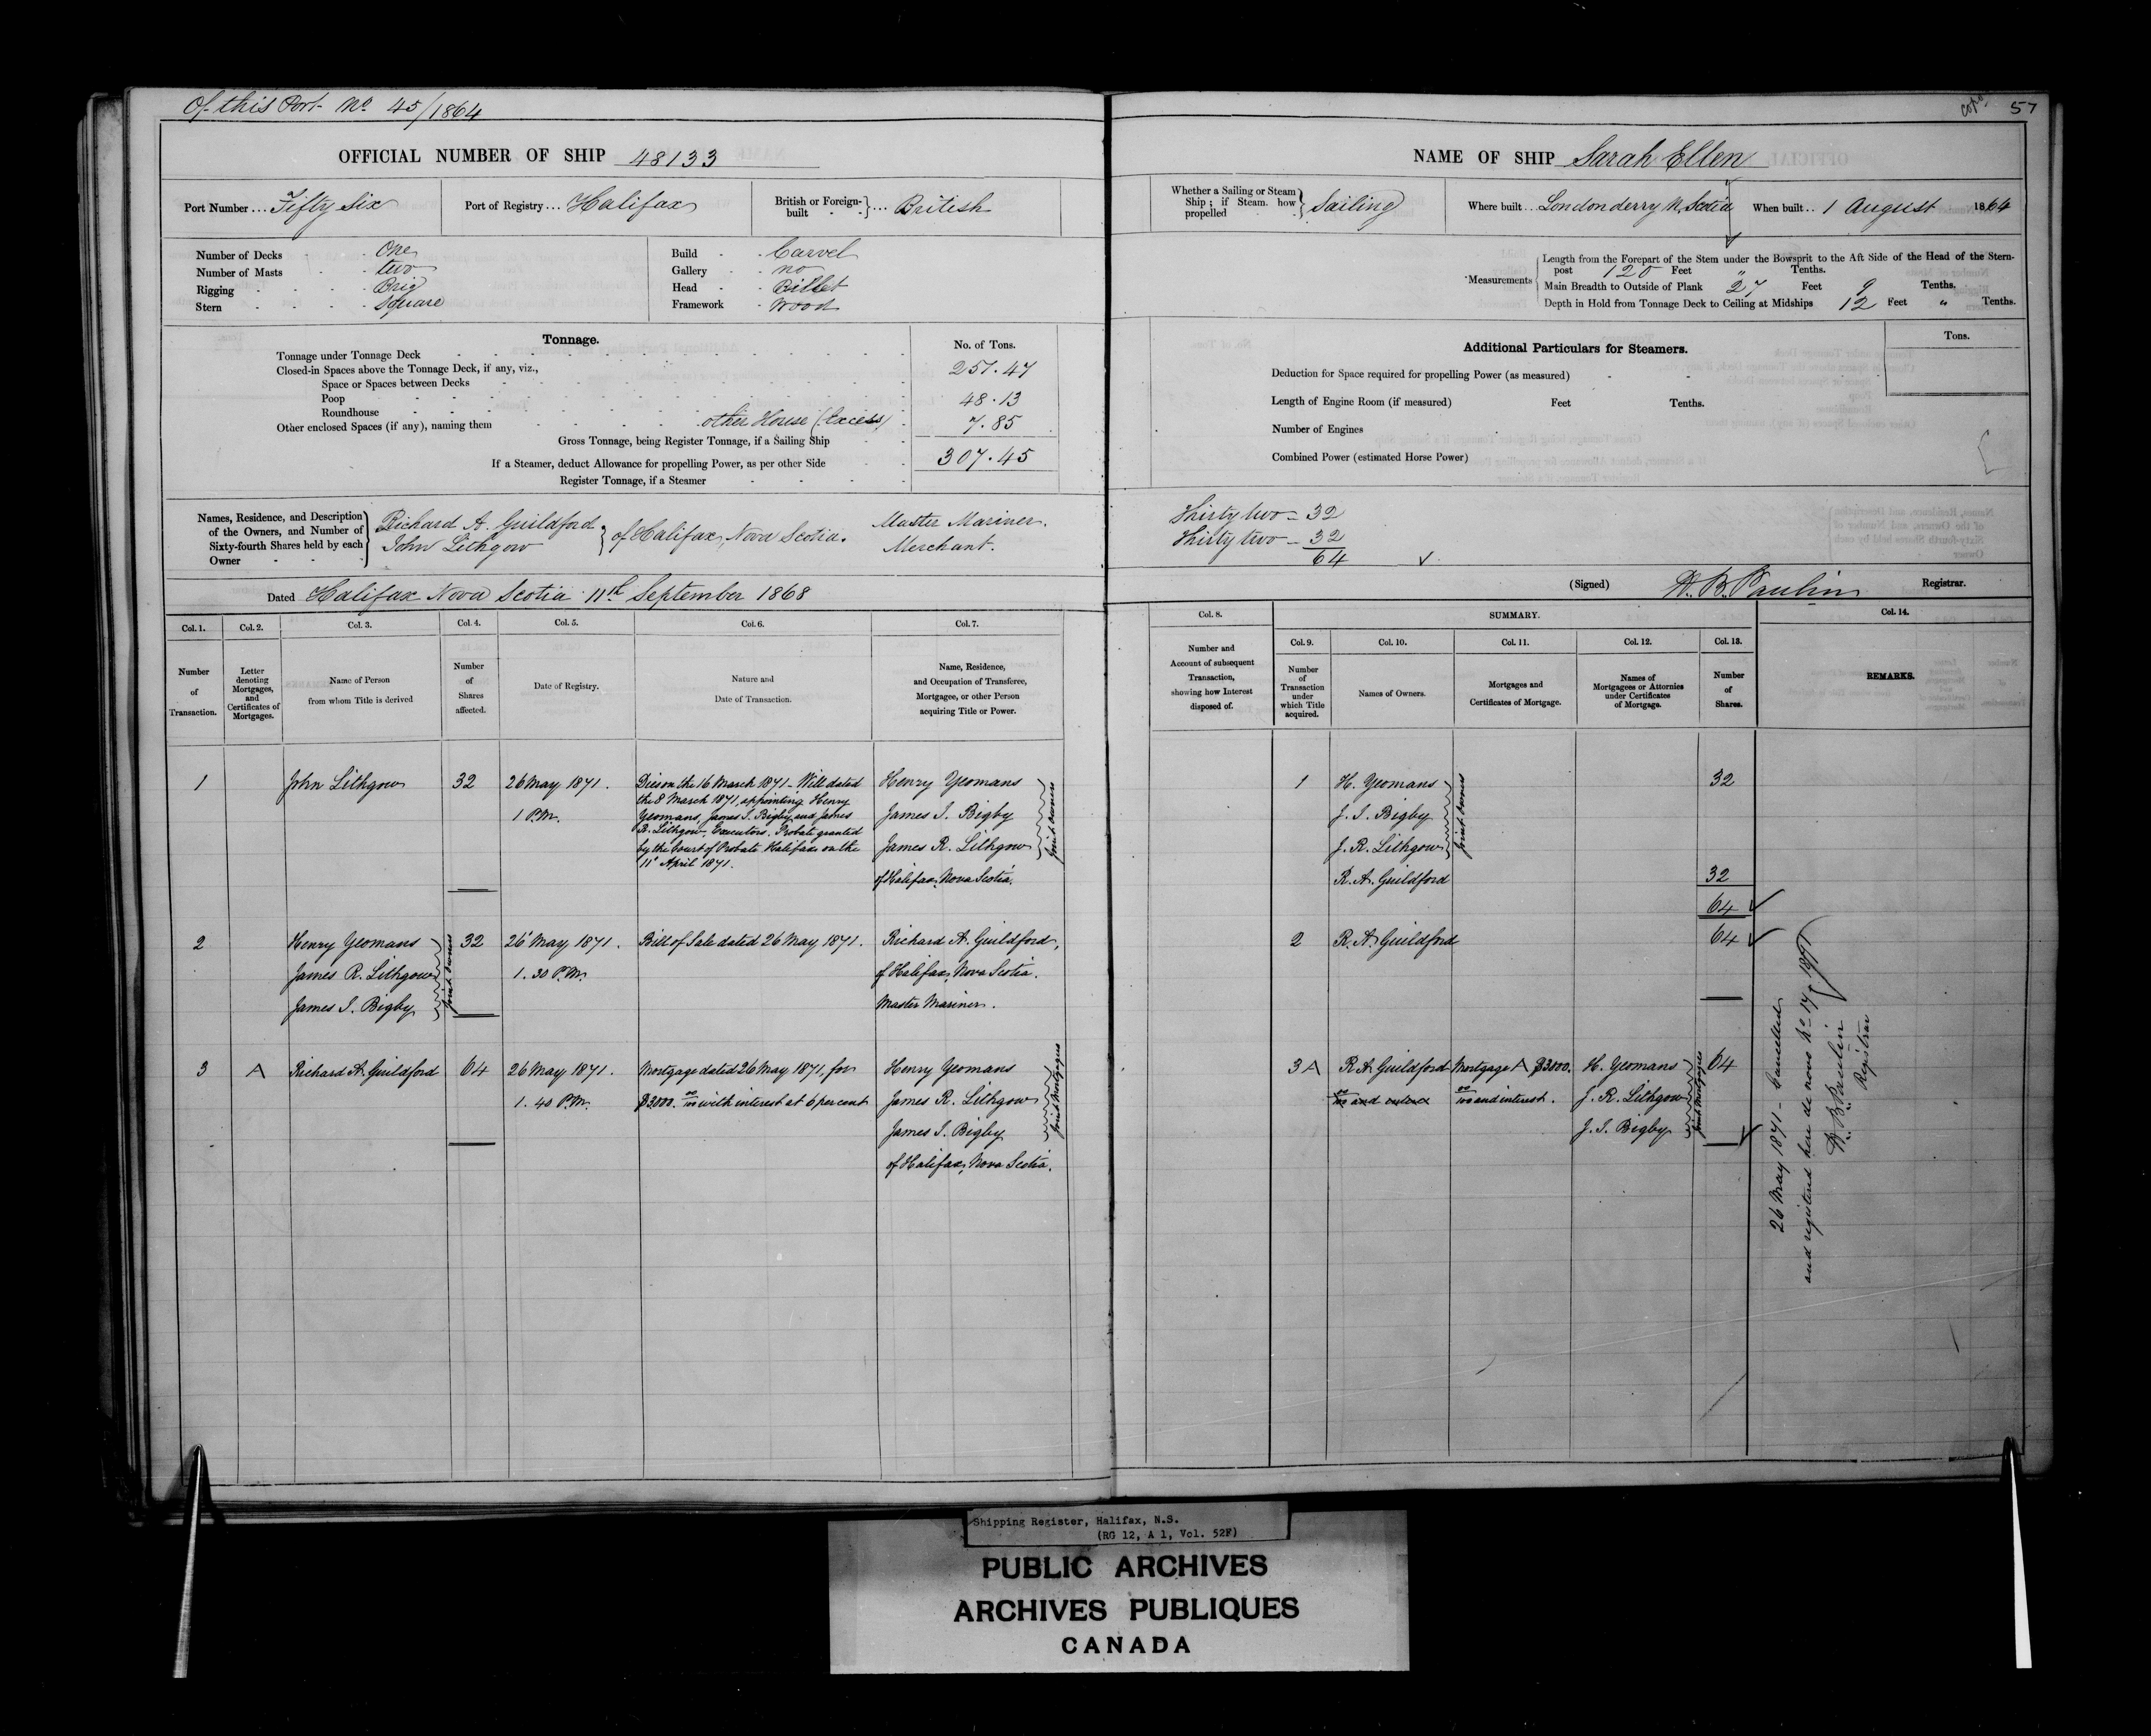 Of this Port No 45/1864
OFFICIAL NUMBER OF SHIP 48133
Port Number ... Fifty Six
Port of Registry ... Halifax
British or Foreign-built } ... British
Number of Decks One
Number of Masts two
Rigging Brig
Stern Square
Build Carvel
Gallery no
Head Billet
Framework Wood
Tonnage.
No. of Tons.
Tonnage under Tonnage Deck 251.47
Closed-in Spaces above the Tonnage Deck, if any, viz.,
Space or Spaces between Decks
Poop 48.13
Roundhouse
Other enclosed Spaces (if any), naming them other House (Excess) 7.85
Gross Tonnage, being Register Tonnage, if a Sailing Ship 307.45
If a Steamer, deduct Allowance for propelling Power, as per other Side
Register Tonnage, if a Steamer
Names, Residence, and Description of the Owners, and Number of Sixty-fourth Shares held by each Owner
Richard A. Guildford
John Lithgow
} of Halifax, Nova Scotia.
Master Mariner.
Merchant.
Dated Halifax Nova Scotia 11th September 1868
Col. 1. Col. 2. Col. 3. Col. 4. Col. 5. Col. 6. Col. 7.
Number of Transaction.
Letter denoting Mortgages, and Certificates of Mortgages.
Name of Person from whom Title is derived
Number of Shares affected.
Date of Registry.
Nature and Date of Transaction.
Name, Residence, and Occupation of Transferee, Mortgagee, or other Person acquiring Title or Power.
1
John Lithgow
32
26 May 1871.
1 P.M.
Died on the 16 March 1871 - Will dated
the 8 March 1871, appointing Henry
Yeomans, James I. Bigby and James
R. Lithgow, Executors. Probate granted
by the Court of Probate Halifax on the
11' April 1871.
Henry Yeomans
James I. Bigby
James R. Lithgow
Joint Owners
of Halifax, Nova Scotia.
2
Henry Yeomans
James R. Lithgow
James I. Bigby
Joint Owners
32
26' May 1871.
1.30 P.M.
Bill of Sale dated 26 May 1871.
Richard A. Guildford,
of Halifax, Nova Scotia.
Master Mariner.
3
A
Richard A. Guildford
64
26 May 1871.
1.40 P.M.
Mortgage dated 26 May 1871, for
$3000. 00/100 with interest at 6 per cent
Henry Yeomans
James R. Lithgow
James I. Bigby
Joint Mortgagees
of Halifax, Nova Scotia.
57
NAME OF SHIP Sarah Ellen
Whether a Sailing or Steam Ship; if Steam, how propelled } Sailing
Where built .. Londonderry N. Scotia
When built .. 1 August 1864
Measurements
Length from the Forepart of the Stem under the Bowsprit to the Aft Side of the Head of the Stern-
post 120 Feet " Tenths.
Main Breadth to Outside of Plank 27 Feet 9 Tenths.
Depth in Hold from Tonnage Deck to Ceiling at Midships 12 Feet " Tenths.
Additional Particulars for Steamers.
Tons.
Deduction for Space required for propelling Power (as measured)
Length of Engine Room (if measured) Feet Tenths.
Number of Engines
Combined Power (estimated Horse Power)
Thirty two - 32
Thirty two - 32
64
(Signed) H. B. Paulin Registrar.
Col. 8.
SUMMARY.
Col. 14.
Col. 9. Col. 10. Col. 11. Col. 12. Col. 13.
Number and Account of subsequent Transaction, showing how Interest disposed of.
Number of Transaction under which Title acquired.
Names of Owners.
Mortgages and Certificates of Mortgage.
Names of Mortgagees or Attornies under Certificates of Mortgage.
Number of Shares.
REMARKS.
1
H. Yeomans
J. I. Bigby
J. R. Lithgow
Joint Owners
32
R. A. Guildford
32
64
2
R. A. Guildford
64
3 A
R. A. Guildford
00/100 and interest
Mortgage A $3000.
00/100 and interest.
H. Yeomans
J. R. Lithgow
J. I. Bigby
Joint Mortgagees
64
26 May 1871 - Cancelled
and registered here de novo No 17 - 1871
H. B. Paulin
Registrar
Shipping Register, Halifax, N.S.
(RG 12, A 1, Vol. 52F)
PUBLIC ARCHIVES
ARCHIVES PUBLIQUES
CANADA